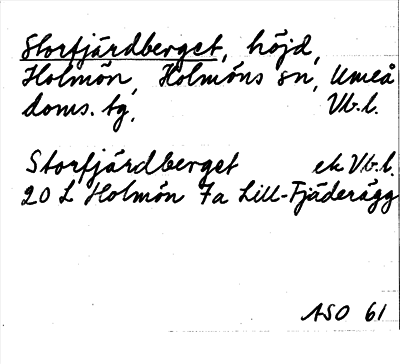 Storfjärdberget, höjd,
Holmön, Holmöns sn, Umeå
doms. tg, Vb.l.
Storfjärdberget ek Vb.l.
20 L Holmön 7a Lill-Fjäderägg
ASO 61